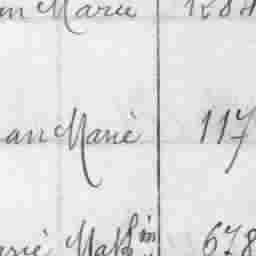 an Marie 1284
an Marie 117
arie Math in 678